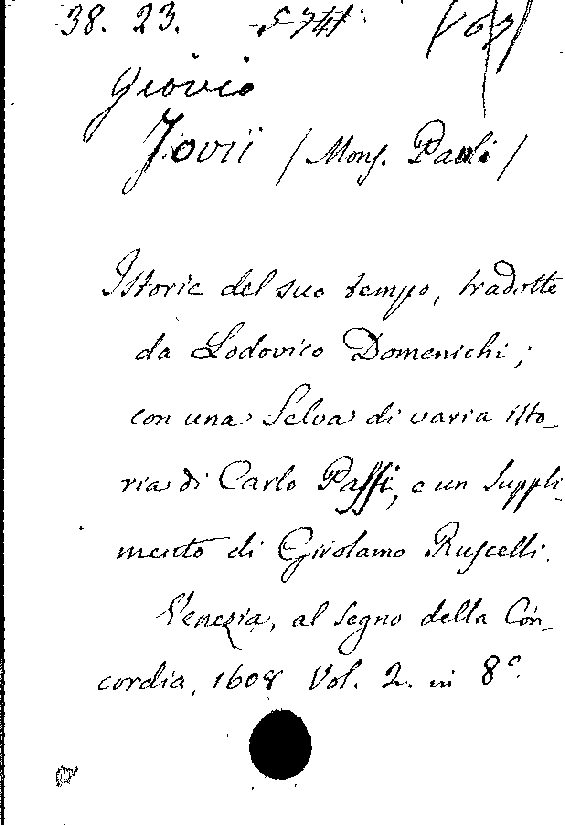 38. 23. 5741
Giovio
Jovii / Mons. Paoli /
Istorie del suo tempo, tradotte
da Lodovico Domenichi;
con una Selva di varia isto-
ria di Carlo Passi, e un Suppli-
mento di Girolamo Ruscelli.
Venezia, al segno della Con-
cordia, 1608 Vol. 2. in 8°.